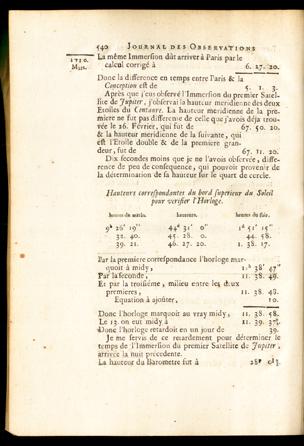 540 JOURNAL DES OBSERVATIONS
1710.
Mars.
La même Immersion dût arriver à Paris par le
calcul corrigé à 6. 27. 20.
Donc la difference en temps entre Paris & la
Conception est de 5. 1. 3.
Après que j'eus observé l'Immersion du premier Satel-
lite de Jupiter, j'observai la hauteur meridienne des deux
Etoiles du Centaure. La hauteur meridienne de la pre-
miere ne fut pas differente de celle que j'avois déja trou-
vée le 26. Février, qui fut de 67. 50. 20.
& la hauteur meridienne de la suivante, qui
est l'Etoile double & de la premiere gran-
deur, fut de 67. 11. 20.
Dix secondes moins que je ne l'avois observée, diffe-
rence de peu de consequence, qui pouvoit provenir de
la détermination de sa hauteur sur le quart de cercle.
Hauteurs correspondantes du bord superieur du Soleil
pour verifier l'Horloge.
heures du matin. hauteurs. heures du soir.
9h 26' 19" 44d 31' 0" 1h 51' 15"
32. 40. 45. 28. 0. 44. 58.
39. 21. 46. 27. 20. 1. 38. 17.
Par la premiere correspondance l'horloge mar-
quoit à midy, 11.h 38' 47"
Par la seconde, 11. 38. 49.
Et par la troisiéme, milieu entre les deux
premieres, 11. 38. 48.
Equation à ajoûter, 10.
Donc l'horloge marquoit au vray midy, 11. 38. 58.
Le 13. on eut midy à 11. 39. 37.
Donc l'horloge retardoit en un jour de 39.
Je me servis de ce retardement pour déterminer le
temps de l'Immersion du premier Satellite de Jupiter,
arrivée la nuit precedente.
La hauteur du Barometre fut à